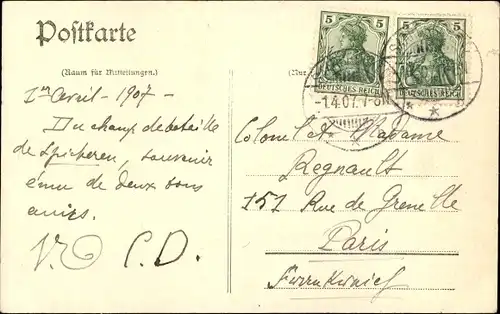 Postkarte
(Raum für Mitteilungen.)
1er Avril - 1907 -
Du champ de bataille
de Spicheren, souvenir
ému de deux bons
amis.
C.D.
5 5
5 5
DEUTSCHES REICH
DEUTSCHES REICH
-1.4.07.7-8
Colonel et Madame
Regnault
151 Rue de Grenelle
Paris
Frankreich